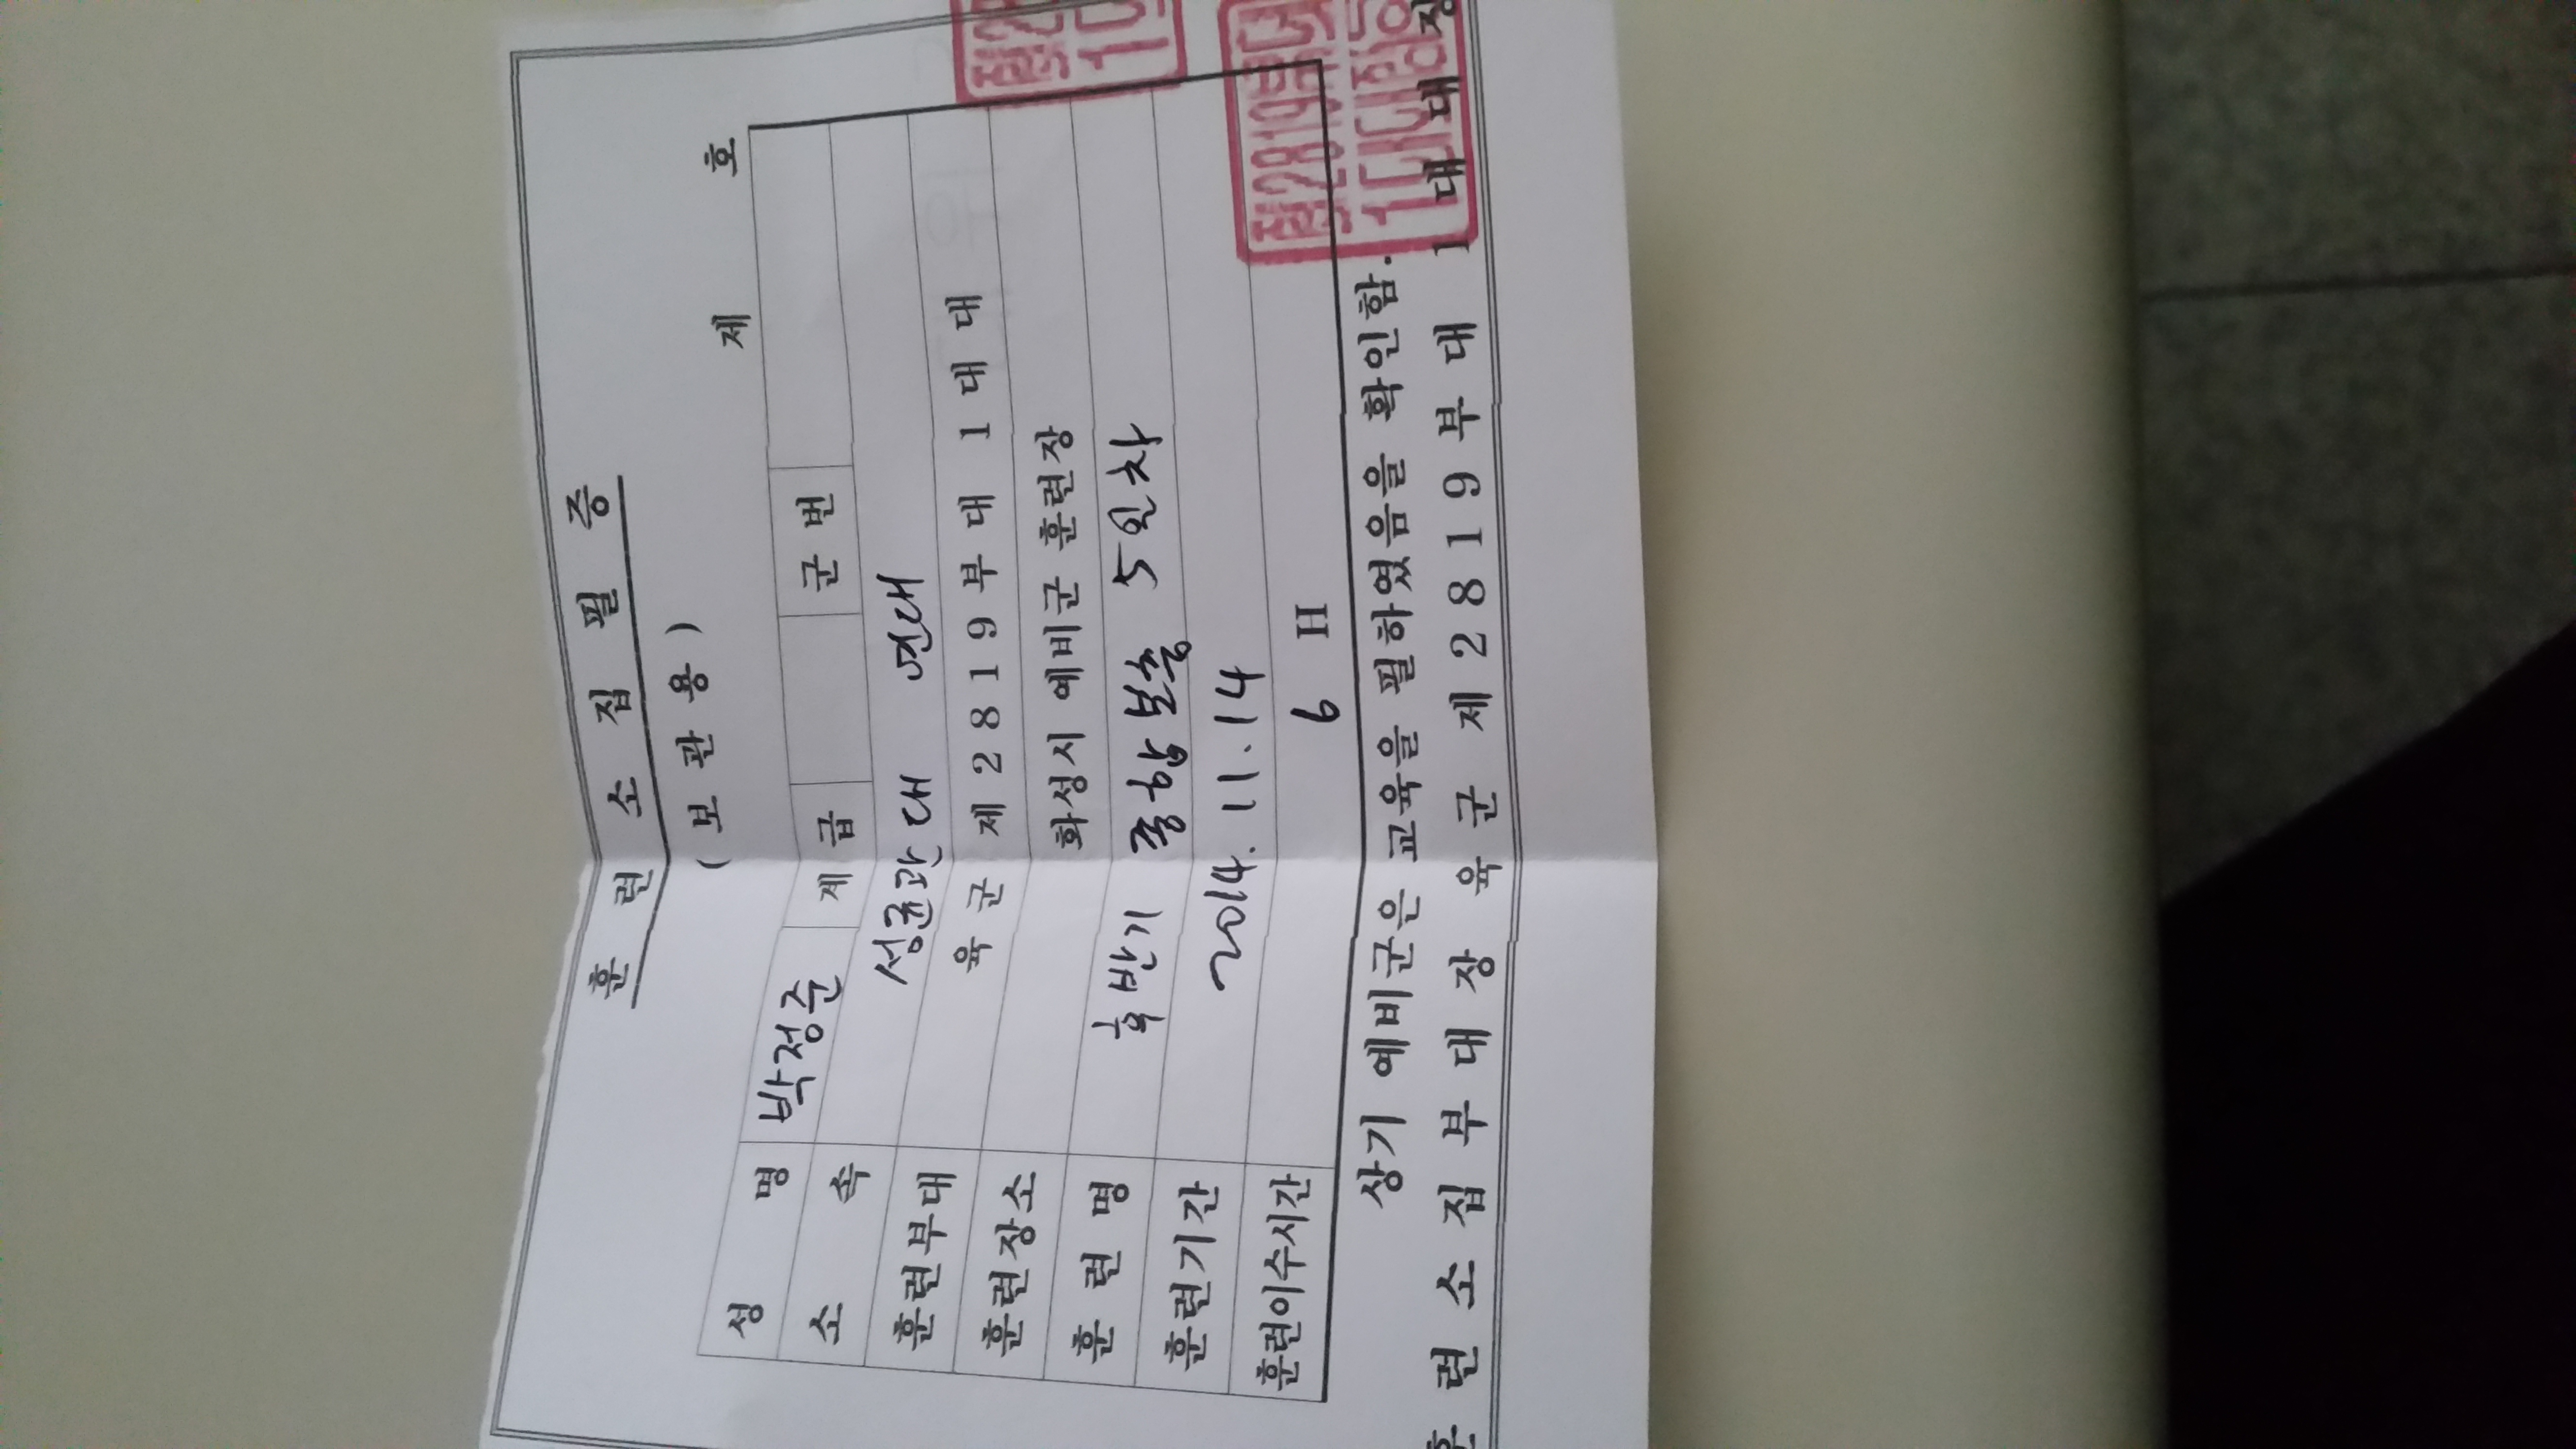 훈 련 소 집 필 증
( 보 관 용 )
제 호
성 명 박정준 계 급 군 번
소 속 성균관대 연대
훈련부대 육 군 제 2 8 1 9 부 대 1 대 대
훈련장소 화성시 예비군 훈련장
훈 련 명 후반기 종합보충 5일차
훈련기간 2014. 11. 14
훈련이수시간 6 H
상기 예비군은 교육을 필하였음을 확인함.
훈 련 소 집 부 대 장 육 군 제 2 8 1 9 부 대 1 대 대 장
제2819부대
1대대장